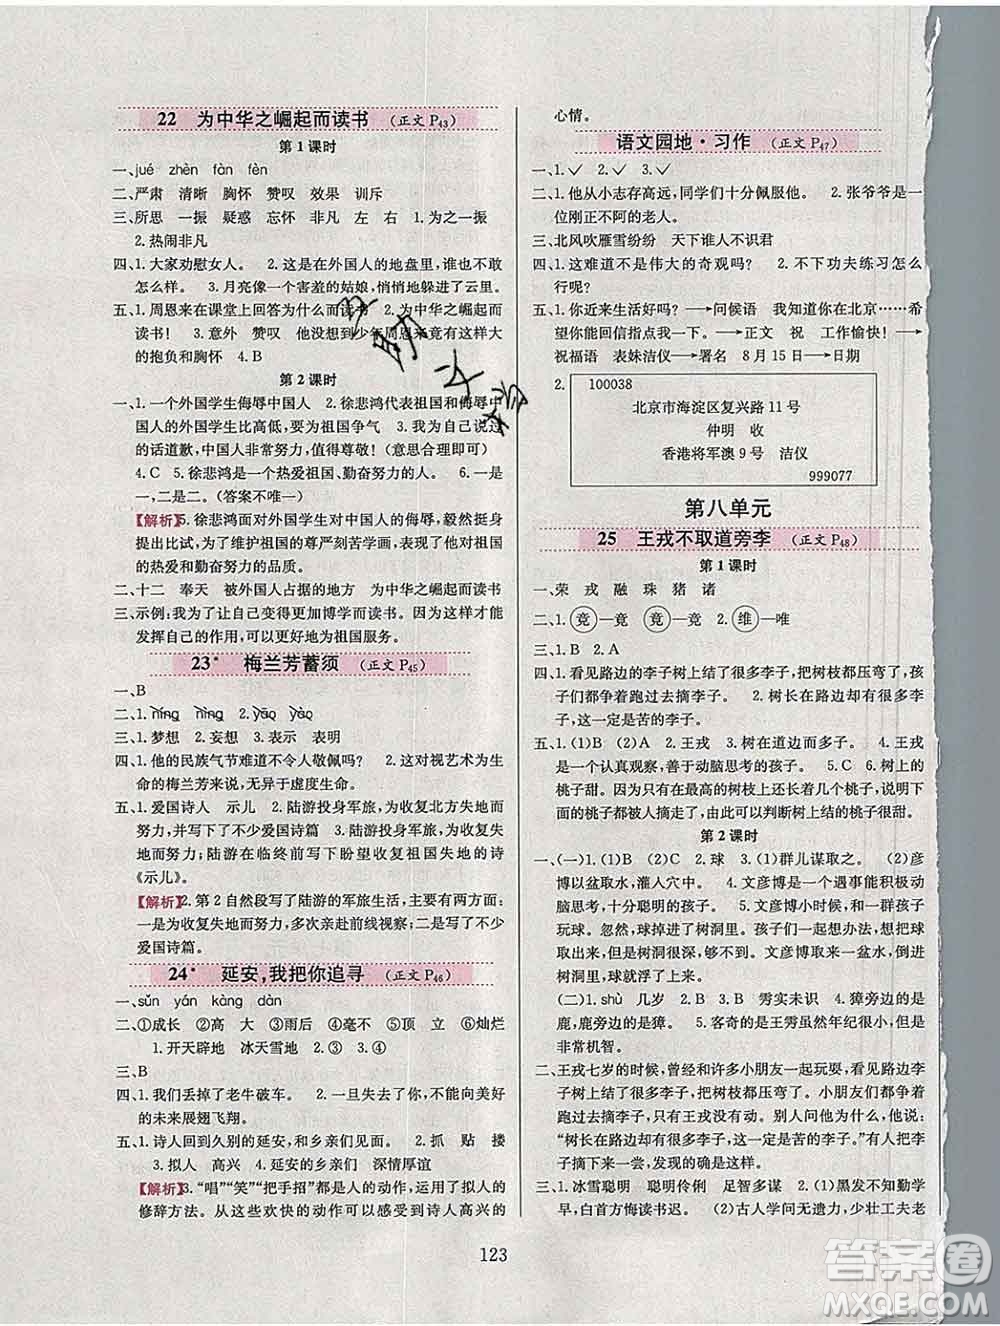 22 为中华之崛起而读书 (正文 P43)
第 1 课时
一、jué zhèn fàn fèn
二、严肃 清晰 胸怀 赞叹 效果 训斥
三、所思 一振 疑惑 忘怀 非凡 左 右 1.为之一振
2.热闹非凡
四、1.大家劝慰女人。 2.这是在外国人的地盘里,谁又敢
怎么样。 3.月亮像一个害羞的姑娘,悄悄地没入了云里。
五、1.周恩来在课堂上回答为什么而读书 2.为中华之崛起而
读书! 3.意外 赞叹 他没想到少年周恩来竟有这样大
的抱负和胸怀 4.B
第 2 课时
一、1.一个外国学生侮辱中国人 2.徐悲鸿代表祖国与轻视中
国人的外国学生比高低,要为祖国争气 3.我为自己说过
的话道歉,中国人非常努力,值得尊敬!(意思合理即可)
4.C 5.徐悲鸿是一个热爱祖国、勤奋努力的人。 6.一是
一,二是二。(答案不唯一)
【解析】5.徐悲鸿面对外国学生对中国人的侮辱,毅然挺身
提出比试,为了维护祖国的尊严刻苦学画,表现了他对祖国
的热爱和勤奋努力的品质。
二、十二 奉天 被外国人占据的地方 为中华之崛起而读书
三、示例:我为了让自己变得更加博学而读书。因为这样才能
发挥自己的作用,可以更好地为祖国服务。
23* 梅兰芳蓄须 (正文 P45)
一、B
二、1.níng nìng 2.yāo yào
三、1.梦想 2.妄想 3.表示 表明
四、1.他的民族气节难道不令人敬佩吗? 2.这对视艺术为生
命的梅兰芳来说,无异于虚度生命。
五、1.爱国诗人 示儿 2.陆游投身军旅,为收复北方失地而
努力,并写下了不少爱国诗篇 3.陆游投身军旅,为收复失
地而努力 陆游在临终前写下盼望收复祖国失地的诗
《示儿》
【解析】2.第 2 自然段写了陆游的军旅生活,主要有两方面:
一是为收复失地而努力,多次亲赴前线视察;二是写了不少
爱国诗篇。
24* 延安,我把你追寻 (正文 P46)
一、sǔn yán kàng dàn
二、①成长 ②高 大 ③雨后 ④毫不 ⑤顶 立 ⑥灿烂
1.开天辟地 冰天雪地 2.③ 3.④
三、B
四、1.我们丢掉了老牛破车。 2.一旦失去了你,就没有美好
的未来展翅飞翔。
五、1.诗人回到久别的延安,和乡亲们见面。 2.抓 贴 搂
3.拟人 高兴 4.延安的乡亲们 深情厚谊
【解析】3.“唱”“笑”“把手招”都是人的动作,运用了拟人的
修辞方法。从这些欢快的动作可以感受到诗人高兴的
心情。
语文园地·习作 (正文 P47)
一、1.✓ 2.✓ 3.✓
二、1.他从小志存高远,同学们十分佩服他。 2.张爷爷是一
位刚正不阿的老人。
三、北风吹雁雪纷纷 天下谁人不识君
四、1.这难道不是伟大的奇观吗? 2.不下功夫练习怎么
行呢?
五、1.你近来生活好吗?→问候语 我知道你在北京……希
望你能回信指点我一下。→正文 祝 工作愉快!→
祝福语 表妹洁仪→署名 8 月 15 日→日期
2. 100038
北京市海淀区复兴路 11 号
仲明 收
香港将军澳 9 号 洁仪
999077
第八单元
25 王戎不取道旁李 (正文 P48)
第 1 课时
一、荣 戎 融 珠 猪 诸
二、1.竞—竟 竟—竞 2.维—唯
三、1.B 2.A
四、1.看见路边的李子树上结了很多李子,把树枝都压弯了,孩
子们都争着跑过去摘李子。 2.树长在路边却有很多李
子,这(一定)是苦的李子。
五、1.(1)B (2)A 2.王戎 3.树在道边而多子。 4.王戎
是一个认真观察,善于动脑思考的人。 5.C 6.树上的
桃子甜。因为长在路边不高的树枝上还有几个桃子,说明下
面的桃子都被人摘走了,由此可以判断树上结的桃子很甜。
第 2 课时
一、(一)1.(1)B (2)C 2.球 3.(1)群儿谋取之。 (2)彦
博以盆取水,灌入穴中。 4.文彦博是一个遇事能积极动
脑思考,十分聪明的人。 5.文彦博小时候,和一群孩子
玩球。忽然,球掉进了树洞里。孩子们想办法,却没能把球
取出来,
树洞里,球就浮了上来。
(二)1.shù 几岁 2.B 3.B 4.秀实未识 5.獐旁边的是
鹿,鹿旁边的是獐。 6.客奇的是王秀虽然年纪很小,却
非常机智。
二、王戎七岁的时候,曾经和许多小朋友一起玩耍。看见路边
李树上结了很多李子,把树枝都压弯了。小朋友们都争着
跑去摘李子,只有王戎没有动。别人问他为什么,他说:
“树长在路边却有这么多李子,这一定是苦的李子。”人们
摘下来一尝,果然是苦的。
三、1.冰雪聪明 聪明伶俐 足智多谋 2.(1)黑发不知勤学
早,白首方悔读书迟。 (2)古人学问无遗力,少壮工夫老
123
答案圈
MXQE.COM